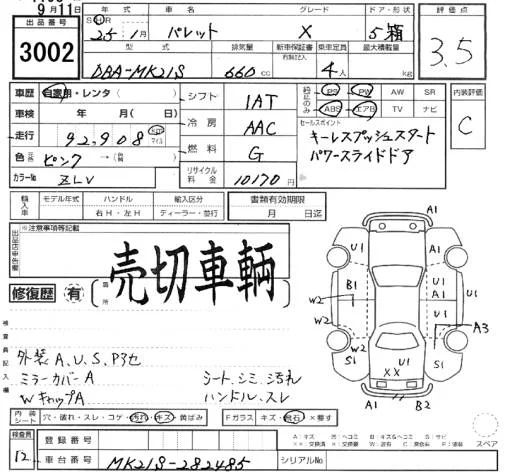 9月11日
出品番号 3002
年式 車名 グレード ドア・形状 評価点
S H R 25年 1月 パレット X 5 箱
3.5
型式 排気量 新車保証書 有無記入 乗車定員 最大積載量
DBA-MK21S 660cc 4人 kg
車歴 自家用・レンタ( ) シフト 1AT PS PW AW SR 内装評価
車検 年 月( 日) 冷房 AAC ABS エアB TV ナビ C
走行 92,908 km マイル セールスポイント
燃料 G キーレスプッシュスタート
色 元色 ピンク →( 系) パワースライドドア
カラーNo ZLV リサイクル料金 10170円
輸入車 モデル年式 ハンドル 輸入区分 書類有効期限
右H・左H ディーラー・並行 月 日迄
※注意事項等記載
売切車両
修復歴 有 箇所
検査員記入欄
外装 A,U,S,Pヨセ
ミラーカバーA シート、シミ、汚れ
WキャップA ハンドル、スレ
A1
U1 U1
B1 U1 A1 U1
W2
W2 A3
S1 U1 S1
XX
A1 B2
内装シート 穴・破れ・スレ・コゲ・汚れ・キズ・黄ばみ Fガラス キズ・飛石・X要す
A:キズ U:ヘコミ B:キズ&ヘコミ S:サビ
スペア
検査員 登録番号
12 車台番号 MK21S-282485 シリアルNo